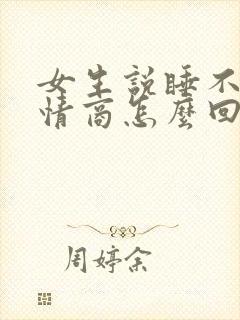 女生説睡不
情商怎麽回
周婷余